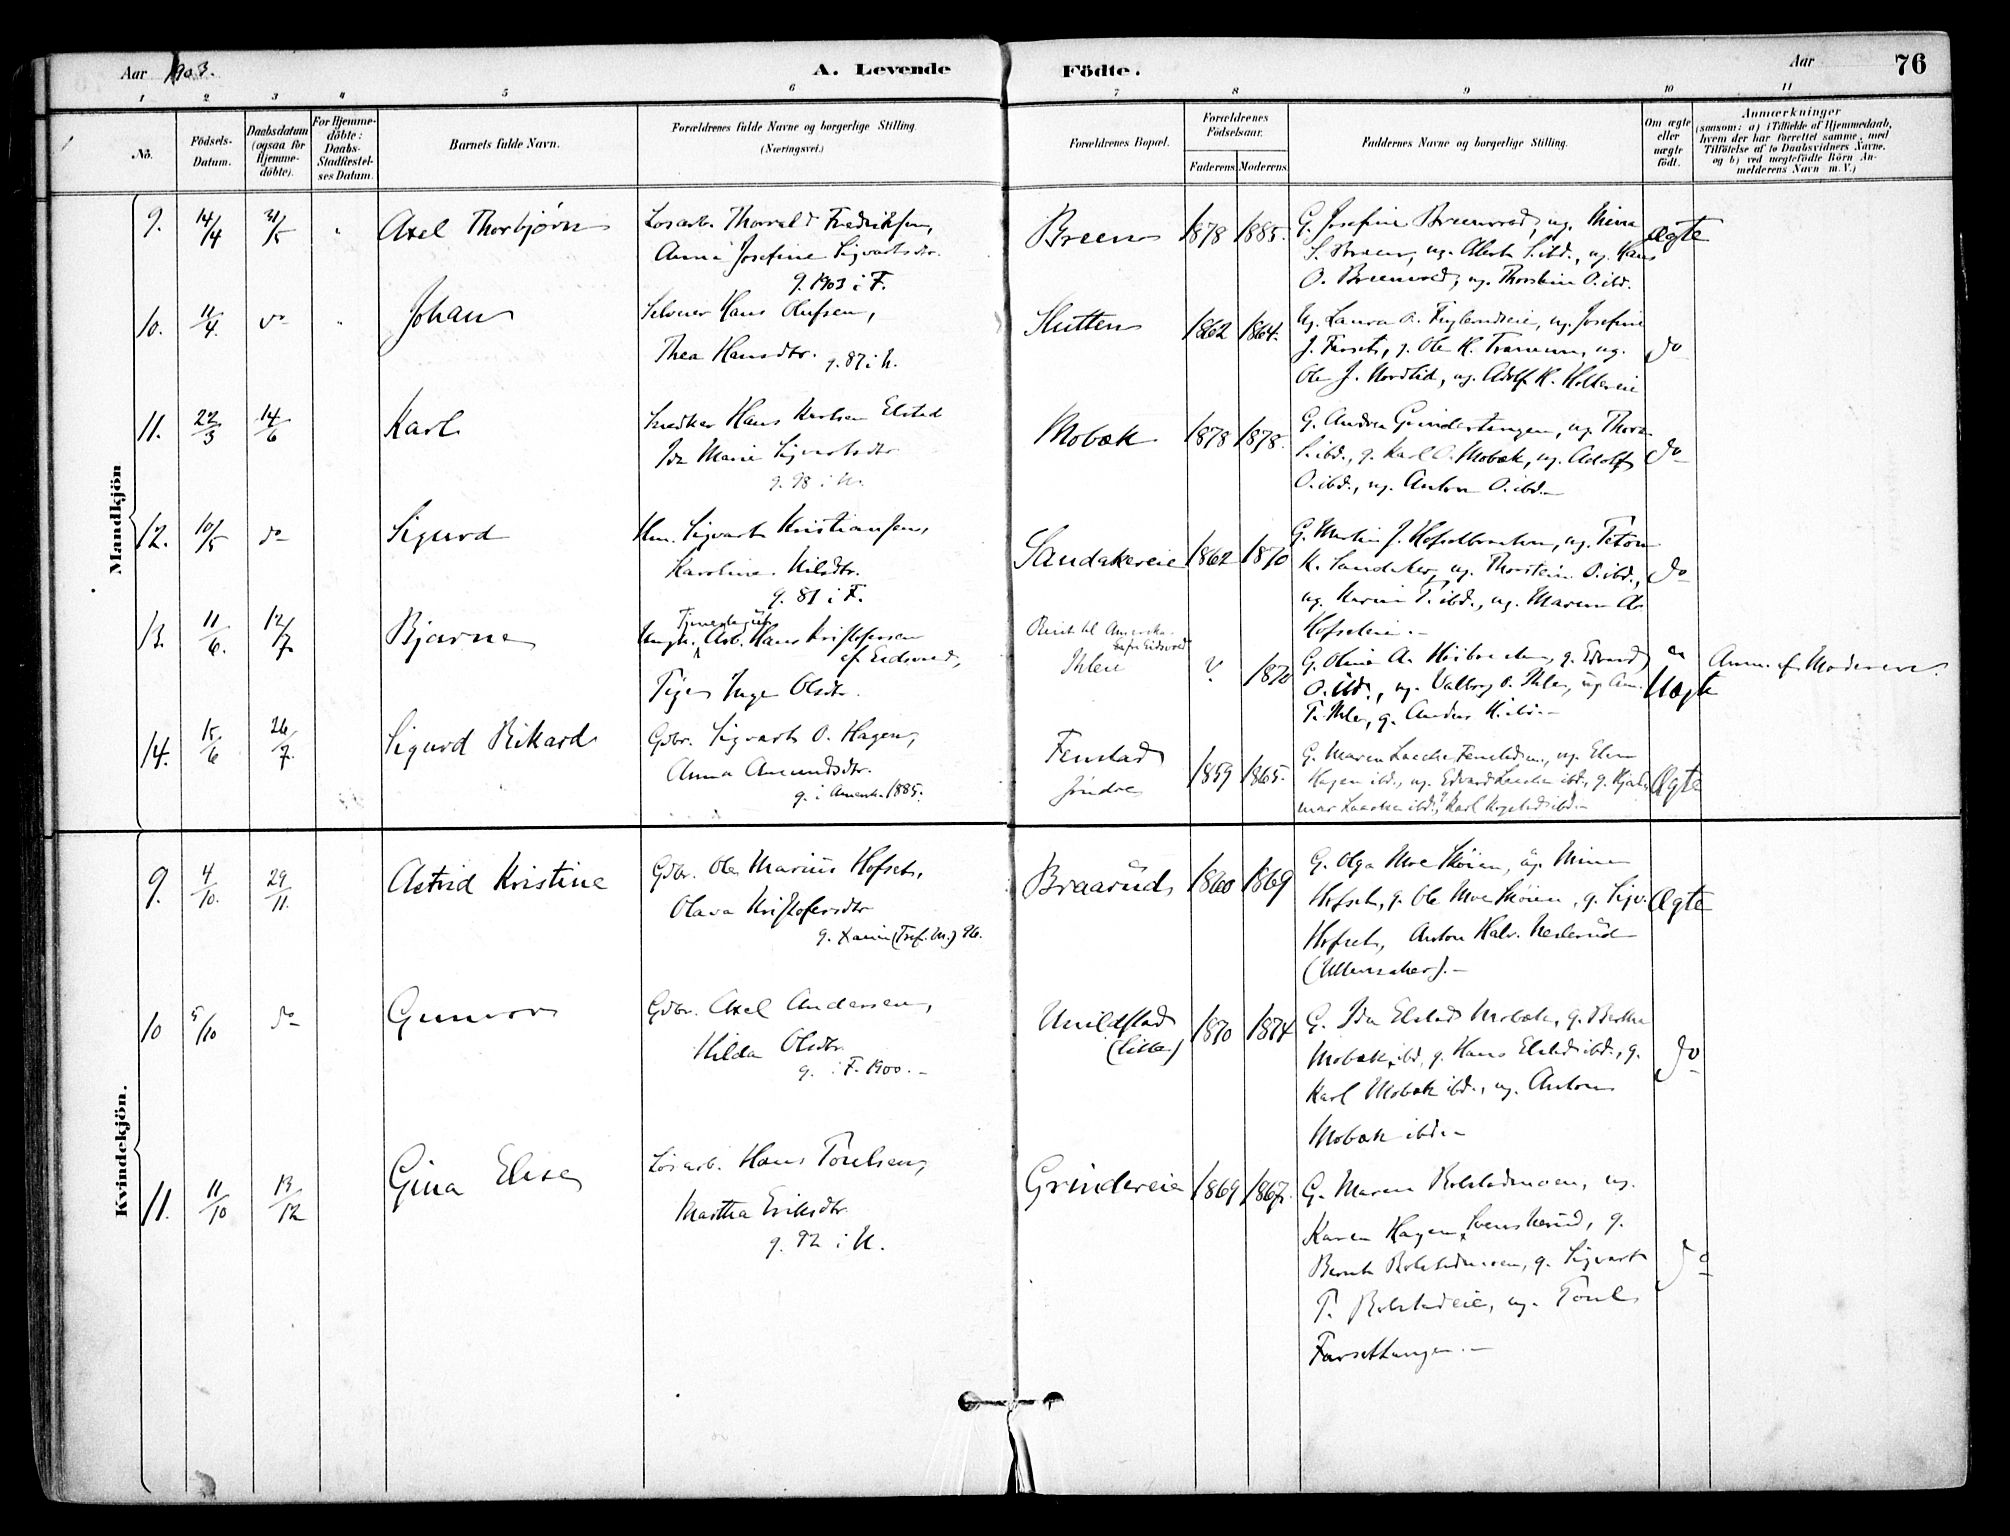 Aar 1903.
A. Levende Födte.
Aar
76
1 2 3 4 5 6 7 8 9 10 11
No.
Födsels-Datum.
Daabsdatum (ogsaa for Hjemme-döbte).
For Hjemme-döbte: Daabs-Stadfæstel-ses Datum.
Barnets fulde Navn.
Forældrenes fulde Navne og borgerlige Stilling.
(Næringsvei.)
Forældrenes Bopæl.
Forældrenes Födselsaar.
Faderens Moderens
Faddernes Navne og borgerlige Stilling.
Om ægte eller uægte födt.
Anmærkninger
(saasom: a) i Tilfælde af Hjemmedaab,
hvem der har forrettet samme, med
Tilföielse af to Daabsvidners Navne.
og b) ved uægtefödte Börn An-
melderens Navn m. V.)
Mandkjön
9. 14/4 31/5 Axel Thorbjørn
Losarb. Thorvald Fredriksen,
Anna Josefine Sigvartsdtr.
g. 1903 i F.
Breen 1878 1885.
G. Josefine Breenvold, ug. Mina
S. Breen, ug. Albert S. ibd., ug. Hans
O. Breenvold, ug. Thorstein O. ibd.
Ægte
10. 11/4 do Johan
Selveier Hans Olufsen,
Thea Hansdtr. g. 87 i N.
Slutten 1862 1864.
Ug. Laura A. , ug. Josefine
J. Farseth, g. Ole K. , ug.
Ole J. Nordlid, ug. Adolf K.
do
11. 22/3 14/6 Karl
Snedker Hans Karlsen Elstad
Ida Marie Sigvartsdtr
g. 98 i N.
Mobæk 1878 1878.
G. Andrea Grindertangen, ug. Thora
S. ibd., g. Karl O. Mobæk, ug. Adolf
O. ibd., ug. Anton O. ibd.
do
12. 10/5 do Sigurd
Hm. Sigvart Kristiansen,
Karoline Nilsdtr.
g. 81 i F.
Sandakereie 1862 1870
G. Martin J. , ug.
K. Sandaker, ug. Thorstein O. ibd.,
ug. Karin T. ibd., ug. Maren A.
do
13. 11/6. 12/7. Bjarne
Tjenestegut
Ungk. Arb. Hans Kristofersen
af Eidsvold,
Pige Inga Olsdtr.
Reist til Amerika
fra Eidsvold
Ihlere ? 1870
G. Olina A. , g. Edvard
O. ibd., ug. Valborg O. Ihler, ug. Am.
T. Ihler, g. Anders
Uægte
Anm. af Moderen.
14. 15/6 26/7. Sigurd Rikard
Gdbr. Sigvart O. Hagen,
Anna Amundsdtr.
g. i Amerika 1885.
Fenstad
Søndre 1859 1865.
G. Maren Laache Fenstad , ug. Elen
Hagen ibd., ug. Edvard Laache ibd., g. Hjal-
mar Laache ibd., Karl ibd.
Ægte
Kvindekjön.
9. 4/10. 29/11. Astrid Kristine
Gdbr. Ole Marius Hofseth,
Olava Kristofersdtr
g.
Braarud 1860 1869
G. Olga Moe Skøien, ug. Mina
Hofseth, g. Ole Moe Skøien, g. Sigv.
Hofseth, Anton Halv. Neslerud
(Ullensaker).
Ægte
10 5/10 do Gunvor
Gdbr. Axel Andersen,
Hilda Olsdtr.
g. i F. 1900.
Unildstad
(Lille) 1870 1874
G. Ida Elstad Mobæk, g. Berthe
Mobæk ibd, g. Hans Elstad ibd., g.
Karl Mobæk ibd., ug. Anton
Mobæk ibd.
do
11. 11/10 13/12 Gina Elise
Losarb. Hans Poulsen,
Martha Eriksdtr.
g. 92 i N.
Grindereie 1869 1867.
G. Maren Rolstadmoen, ug.
Karen Hagen Svenskerud, g.
Bernt Rolstadmoen, g. Sigvart
T. Rolstadeie, ug. Poul
Farsettangen.
do